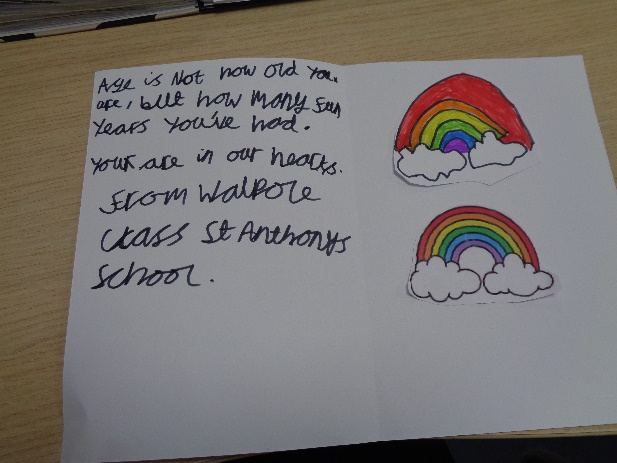 Age is Not how old you
are, but how many fun
Years You've had.
your are in our hearts.
From Walpole
Class St Anthonys
School.